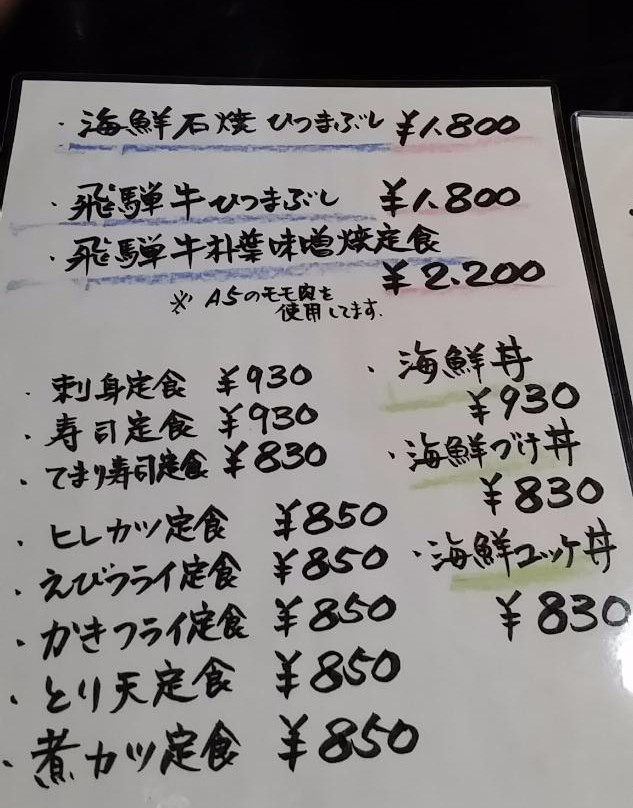 ・海鮮石焼ひつまぶし ¥1.800
・飛騨牛ひつまぶし ¥1.800
・飛騨牛朴葉味噌焼定食
¥2.200
※A5のモモ肉を
使用してます.
・刺身定食 ¥930
・寿司定食 ¥930
・てまり寿司定食 ¥830
・ヒレカツ定食 ¥850
・えびフライ定食 ¥850
・かきフライ定食 ¥850
・とり天定食 ¥850
・煮カツ定食 ¥850
・海鮮丼
¥930
・海鮮づけ丼
¥830
・海鮮ユッケ丼
¥830